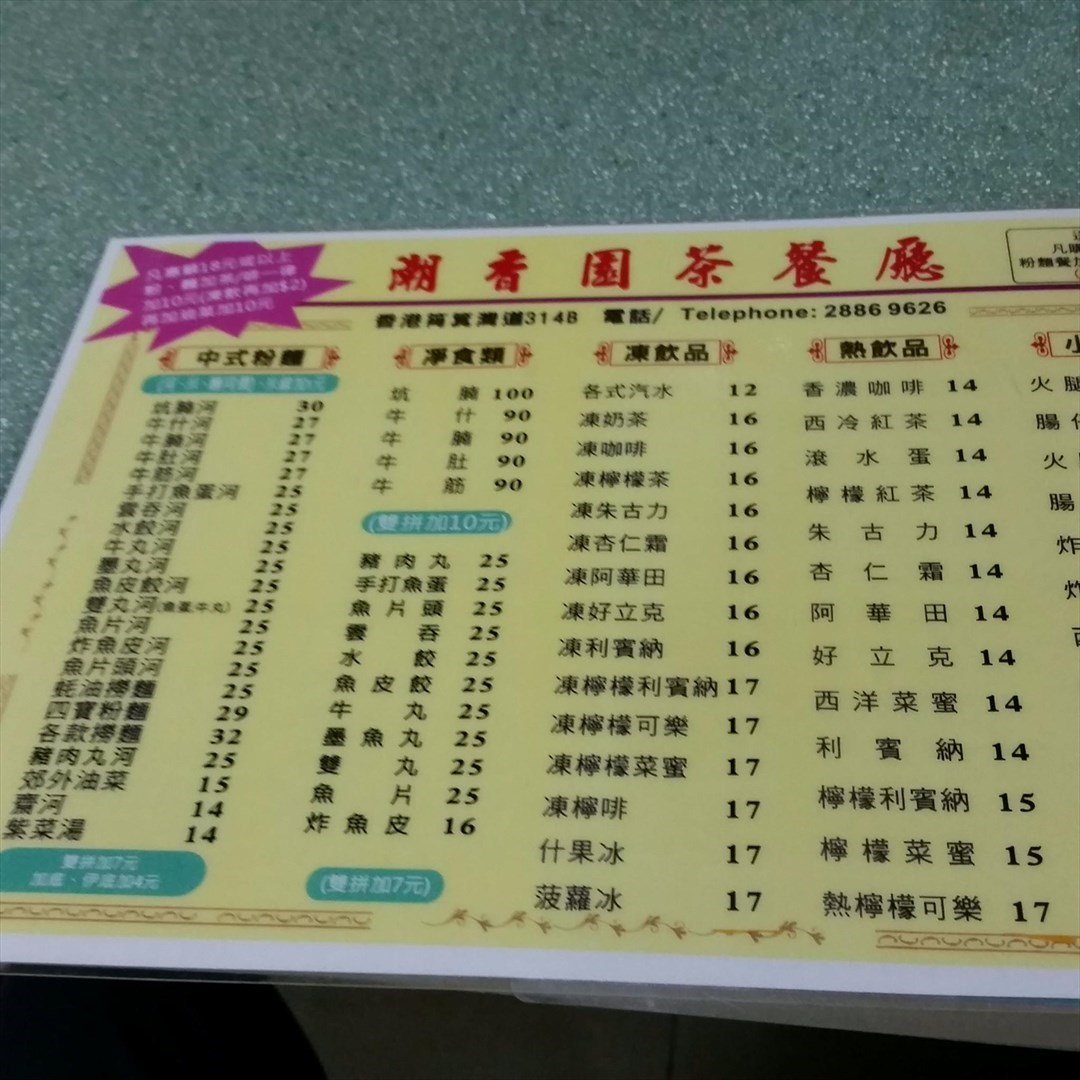 潮香園茶餐廳
香港筲箕灣道314B 電話/ Telephone: 2886 9626
凡惠顧18元或以上
粉、麵加茶/啡一律
加10元(凍飲再加$2)
再加油菜加10元
凡購
粉麵餐加
中式粉麵
坑腩河 30
牛什河 27
牛腩河 27
牛肚河 27
牛筋河 27
手打魚蛋河 25
雲吞河 25
水餃河 25
牛丸河 25
墨丸河 25
魚皮餃河 25
雙丸河(魚蛋.牛丸) 25
魚片河 25
炸魚皮河 25
魚片頭河 25
蚝油撈麵 25
四寶粉麵 29
各款撈麵 32
豬肉丸河 25
郊外油菜 15
齋河 14
紫菜湯 14
雙拼加7元
加底、伊底加4元
淨食類
坑腩 100
牛什 90
牛腩 90
牛肚 90
牛筋 90
(雙拼加10元)
豬肉丸 25
手打魚蛋 25
魚片頭 25
雲吞 25
水餃 25
魚皮餃 25
牛丸 25
墨魚丸 25
雙丸 25
魚片 25
炸魚皮 16
(雙拼加7元)
凍飲品
各式汽水 12
凍奶茶 16
凍咖啡 16
凍檸檬茶 16
凍朱古力 16
凍杏仁霜 16
凍阿華田 16
凍好立克 16
凍利賓納 16
凍檸檬利賓納 17
凍檸檬可樂 17
凍檸檬菜蜜 17
凍檸啡 17
什果冰 17
菠蘿冰 17
熱飲品
香濃咖啡 14
西冷紅茶 14
滾水蛋 14
檸檬紅茶 14
朱古力 14
杏仁霜 14
阿華田 14
好立克 14
西洋菜蜜 14
利賓納 14
檸檬利賓納 15
檸檬菜蜜 15
熱檸檬可樂 17
小
火腿
腸
火
腸
炸